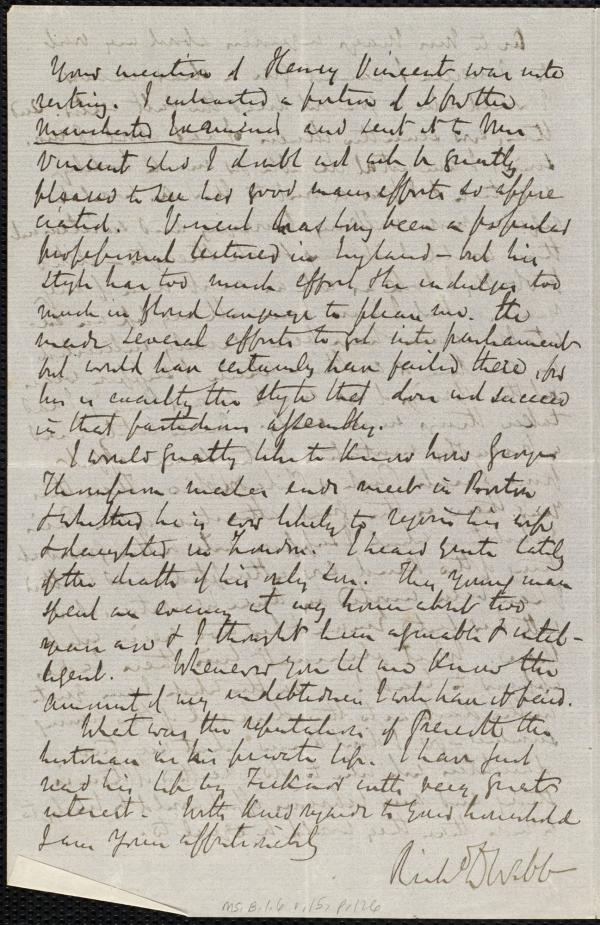 Your mention of Henry Vincent was inte
resting. I extracted a portion of it for the
Manchester Examiner and sent it to Mrs
Vincent who I doubt not will be greatly
pleased to see her good man's efforts so appre
ciated. Vincent has long been a popular
professional lecturer in England - but his
style has too much effort, & he indulges too
much in florid language to please me. He
made several efforts to get into parliament
but would have certainly have failed there, for
his is exactly the style that does not succeed
in that fastidious assembly.
I would greatly like to know how George
Thompson makes ends meet in Boston
& whether he is ever likely to rejoin his wife
& daughter in London. I heard quite lately
of the death of his only son. The young man
spent an evening at my house about two
years ago & I thought him agreeable & intel-
ligent. Whenever you let me know the
amount of my indebtedness I will have it paid.
What was the reputation of Prescott the
historian in his private life. I have just
read his life by Ticknor with very great
interest. With kind regards to your household
I am yours affectionately
Richd D Webb
MS. B. 1. 6 v. 15, p. 126